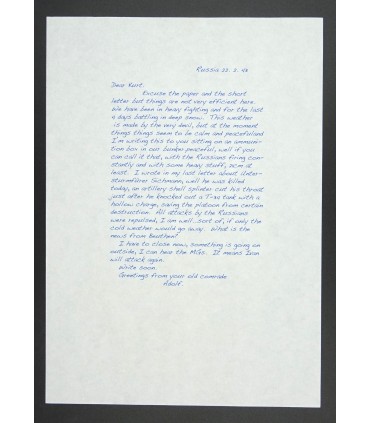 Russia 22. 2. 43
Dear Kurt.
Excuse the paper and the short
letter but things are not very efficient here.
We have been in heavy fighting and for the last
4 days battling in deep snow. This weather
is make by the very devil, but at the moment
things things seem to be calm and peacefulland
I'm writing this to you sitting on an ammuni-
tion box in our bunker,peaceful, well if you
can call it that, with the Russians firing con-
stantly and with some heavy stuff, at
least. I wrote in my last letter about Unter-
sturmführer Sichmann, well he was killed
today, an artillery shell splinter cut his throat
just after he knocked out a T-34 tank with a
hollow charge, saving the platoon from certain
destruction. All attacks by the Russians
were repulsed, I am well..sort of, if only the
cold weather would go away. What is the
news from Beuthen?
I have to close now, something is going on
outside, I can hear the MGs. It means Ivan
will attack again.
Write soon.
Greetings from your old comrade
Adolf.